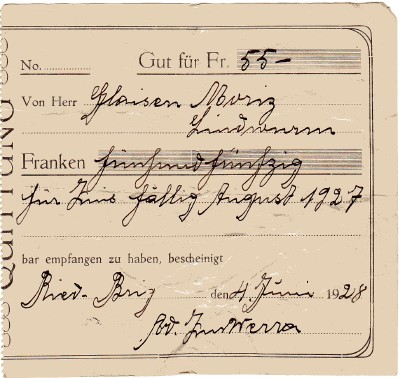 QUITTUNG
No. Gut für Fr. 55-
Von Herr Glaisen Moriz
Lindwurm
Franken fünfundfünfzig
für Zins fällig August 1927
bar empfangen zu haben, bescheinigt
Ried-Brig den 4 Juni 1928
ZenWerra